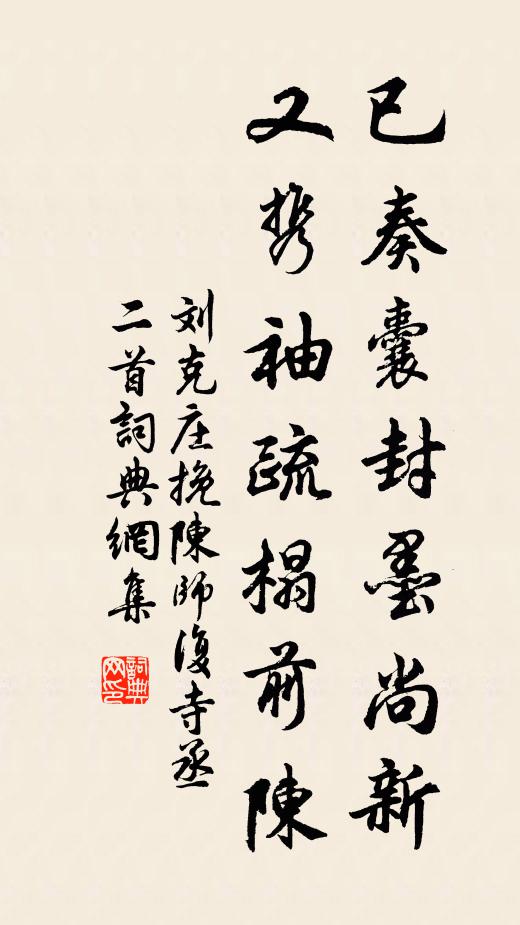 已奏囊封墨尚新
又携袖疏榻前陳
刘克庄挽陳師復寺丞
二首詞典網集
詞典
网印